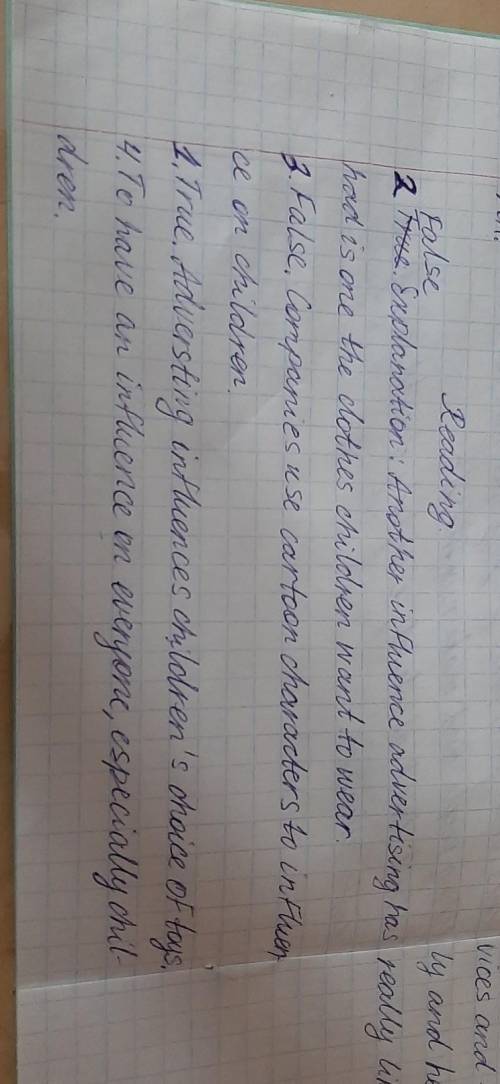 vices and
ly and
Reading
False
2 True. Explanation: Another influence advertising has really
had is one the clothes children want to wear.
3. False. Companies use cartoon characters to influen
ce on children.
1. True. Adversting influences children's choice of toys.
4. To have an influence on everyone, especially chil-
dren.